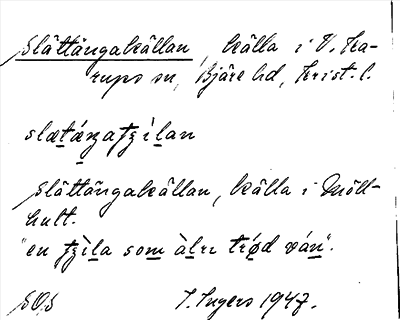 Slättängakällan, källa i V. Ka-
rups sn, Bjäre hd, Krist. l.
slætáŋatʒìlan
Slättängakällan, källa i Möll-
hult.
"en tʒìla som àlrı trǿd ván".
SOS I. Ingers 1947.